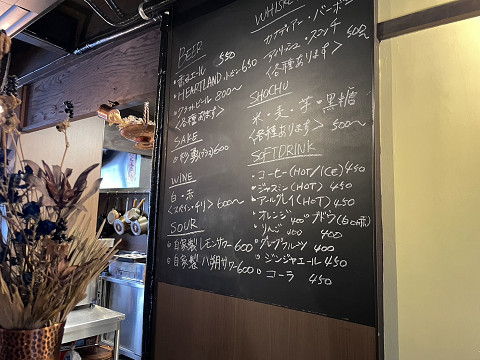 BEER
550
HEARTLAND
クラフトビール 800〜
<各種あります>
SAKE
600
WINE
白・赤
<スペイン・チリ> 600〜
SOUR
自家製 レモンサワー 600
自家製 八朔サワー 600
WHISKE
カナディアン・バーボン
アイリッシュ・スコッチ
<各種あります> 500〜
SHOCHU
米・麦・芋・黒糖
<各種あります> 500〜
SOFTDRINK
・コーヒー(HOT/ICE) 450
・ジャスミン(HOT) 450
・アールグレイ(HOT) 450
・オレンジ 400 ブドウ
・りんご 400 400
・グレープフルーツ 400
・ジンジャエール 450
・コーラ 450